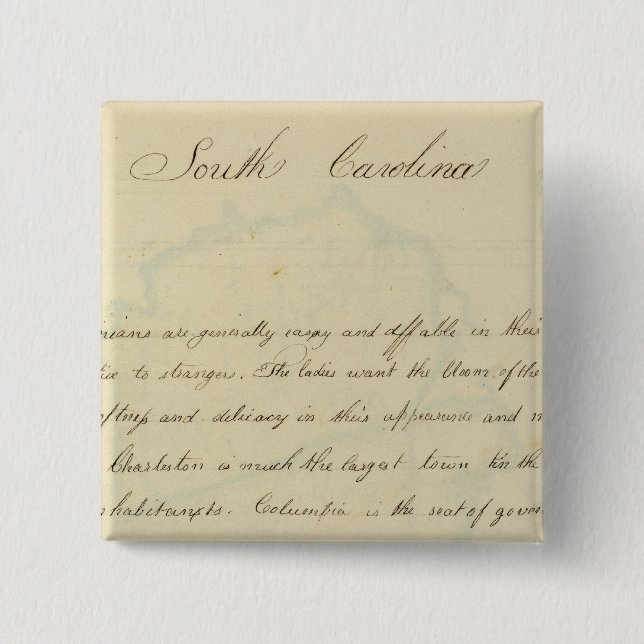 South Carolina
nians are generally easay and affable in their
tice to strangers. The ladies want the bloom of the
oftness and delicacy in their appearance and m
Charleston is much the largest town tin the
nhabitants. Columbia is the seat of gover